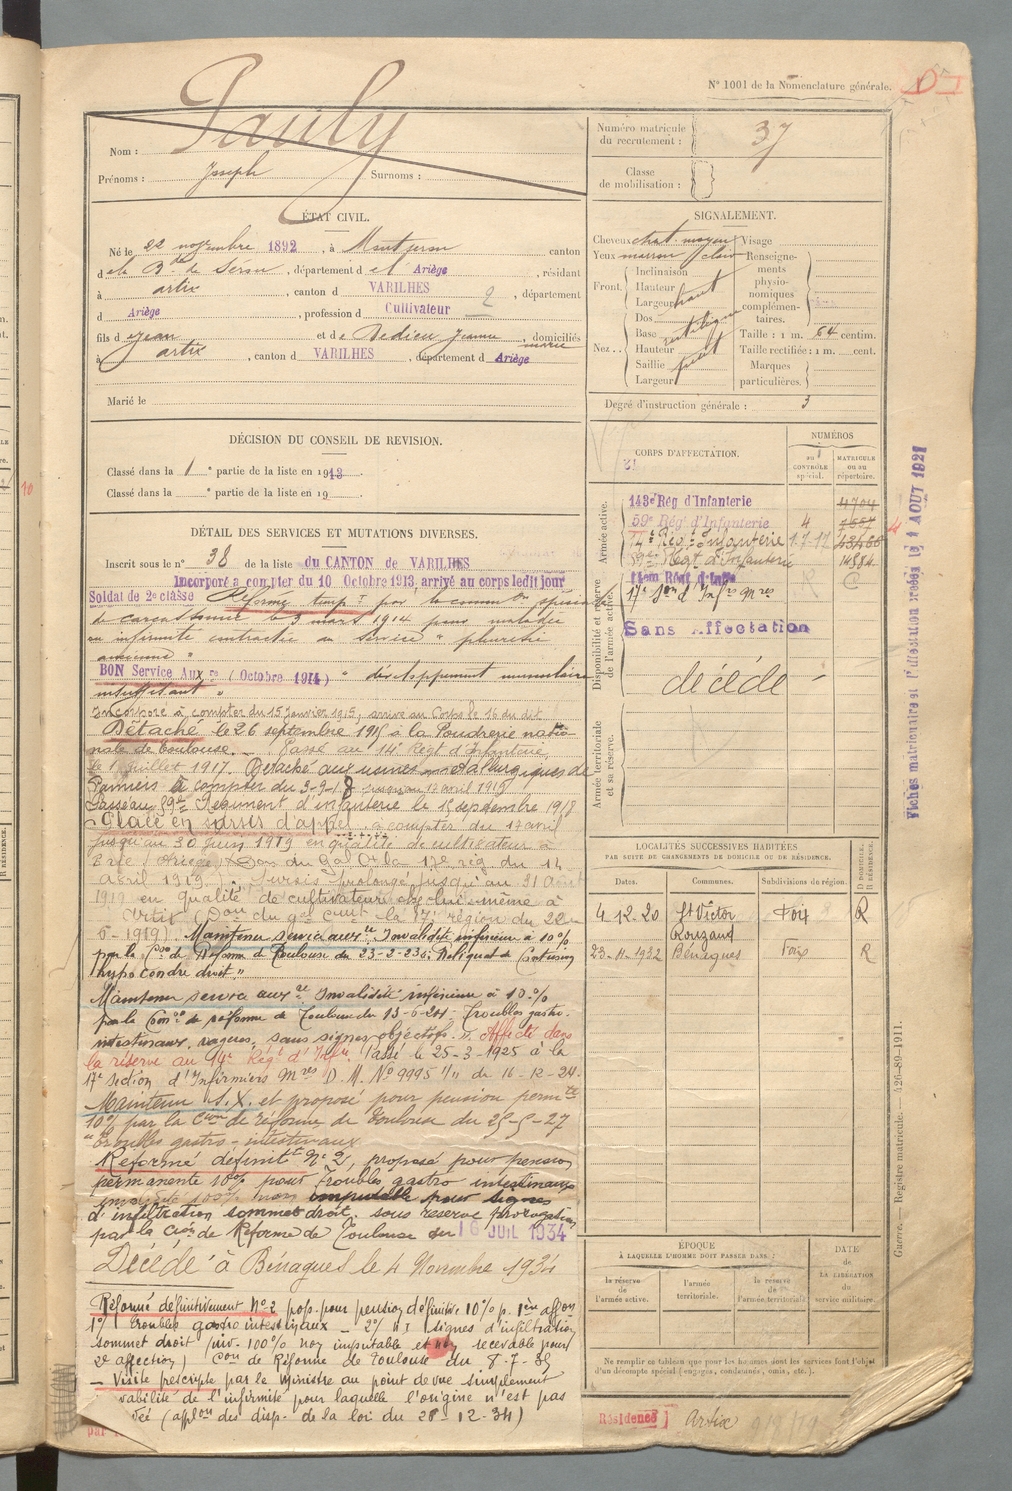 N° 1001 de la Nomenclature générale.
Nom : Pauly
Prénoms : Joseph Surnoms :
Numéro matricule du recrutement : 37
Classe de mobilisation :
ÉTAT CIVIL.
Né le 22 novembre 1892, à Montjeron canton
de la B.de de Sérou, département de l' Ariège, résidant
à artix, canton d VARILHES, département
d Ariège, profession d Cultivateur 2
fils d Jean et de Dedieu Jeanne marie domiciliés
à artix, canton d VARILHES, département d Ariège
Marié le
SIGNALEMENT.
Cheveux chat. moyen Visage
Yeux marron clair Renseigne-
ments
physio-
nomiques
complémen-
taires.
Front. Inclinaison
Hauteur
Largeur haut
Nez.. Dos
Base rectiligne
Hauteur
Saillie petit
Largeur
Taille : 1 m. 64 centim.
Taille rectifiée : 1 m. cent.
Marques particulières.
Degré d'instruction générale : 3
DÉCISION DU CONSEIL DE REVISION.
Classé dans la 1e partie de la liste en 1913
Classé dans la e partie de la liste en 19
CORPS D'AFFECTATION.
NUMÉROS
au CONTRÔLE spécial.
MATRICULE ou au répertoire.
Armée active.
143e Rég d'Infanterie 4704
59e Rég d'Infanterie 4 7557
14e Rég. Infanterie 1.7.17
89e Régt d'Infanterie 14884
Disponibilité et réserve de l'armée active.
14em Régt d'Infie
17e Son d'Infrs Mres
Sans Affectation
décédé
Armée territoriale et sa réserve.
DÉTAIL DES SERVICES ET MUTATIONS DIVERSES.
Inscrit sous le n° 38 de la liste du CANTON de VARILHES
Incorporé a compter du 10 Octobre 1913, arrivé au corps ledit jour
Soldat de 2e classe Réformé tempre par la common spéciale
de carcassonne le 3 mars 1914 pour maladie
ou infirmité contractée au service " pleurésie
ancienne "
BON Service Auxre (Octobre 1914) " développement musculaire
insuffisant "
Incorporé à compter du 15 Janvier 1915, arrivé au Corps le 16 du dit
Détaché le 26 septembre 1915 à la Poudrerie natio-
nale de toulouse. Passé au 14e Régt d'Infanterie
le 1 juillet 1917. Détaché aux usines métallurgiques de
Pamiers à compter du 3-9-18 jusqu'au 17 avril 1919
Passé au 89e Régiment d'infanterie le 15 septembre 1918
Placé en sursis d'appel à compter du 17 avril
jusqu'au 30 juin 1919 en qualité de cultivateur à
(Ariège) Don du Gal Ct la 17e rég. du 14
avril 1919. Sursis prolongé jusqu'au 31 Août
1919 en qualité de cultivateur chez lui-même à
Artix (Don du gal Cmt la 17e région du 22-
6-1919) Maintenu service auxre Invalidité inférieure à 10%
par la Con de Réforme de Toulouse du 23-2-23: Reliquat de contusion
hypocondre droit."
Maintenu service auxre Invalidité inférieure à 10%
par la Con de réforme de Toulouse du 13-6-24: Troubles gastro-
intestinaux, vagues, sans signes objectifs." Affecté dans
la réserve au 14e Régt d'Infie. Passé le 25-3-1925 à la
17e section d'Infirmiers Mres D.M. No 9995 du 16-12-24.
Maintenu S.X. et proposé pour pension permte
10% par la Cion de réforme de Toulouse du 25-5-27
"Troubles gastro-intestinaux
Réformé définitt N° 2, proposé pour pension
permanente 10% pour Troubles gastro intestinaux
100% non imputable pour signes
d'infiltration sommet droit, sous réserve prorogation
par la Cion de Réforme de Toulouse du 16 JUIL 1934
Décédé à Bénagues le 4 Novembre 1934
Réformé définitivement N°2 prop. pour pension définitive 10% p. 1ère affon
1°/ Troubles gastro intestinaux - 2°/ signes d'infiltration
sommet droit (inv. 100% non imputable et non recevable pour
2e affection) Con de Réforme de Toulouse du 8-7-35
- Visite prescrite par le Ministre au point de vue simplement
vabilité de l'infirmité pour laquelle l'origine n'est pas
(applon des disp. de la loi du 28-12-34)
LOCALITÉS SUCCESSIVES HABITÉES
PAR SUITE DE CHANGEMENTS DE DOMICILE OU DE RÉSIDENCE.
Dates. Communes. Subdivisions de région. D DOMICILE. R RÉSIDENCE.
4-12-20 St Victor Rouzaud Foix R
23-11-1932 Bénagues Foix R
ÉPOQUE
À LAQUELLE L'HOMME DOIT PASSER DANS :
la réserve de l'armée active.
l'armée territoriale.
la réserve de l'armée territoriale.
DATE de LA LIBÉRATION du service militaire.
Ne remplir ce tableau que pour les hommes dont les services font l'objet
d'un décompte spécial (engagés, condamnés, omis, etc.).
Résidence Artix
Guerre. — Registre matricule. — 426-89-1911.